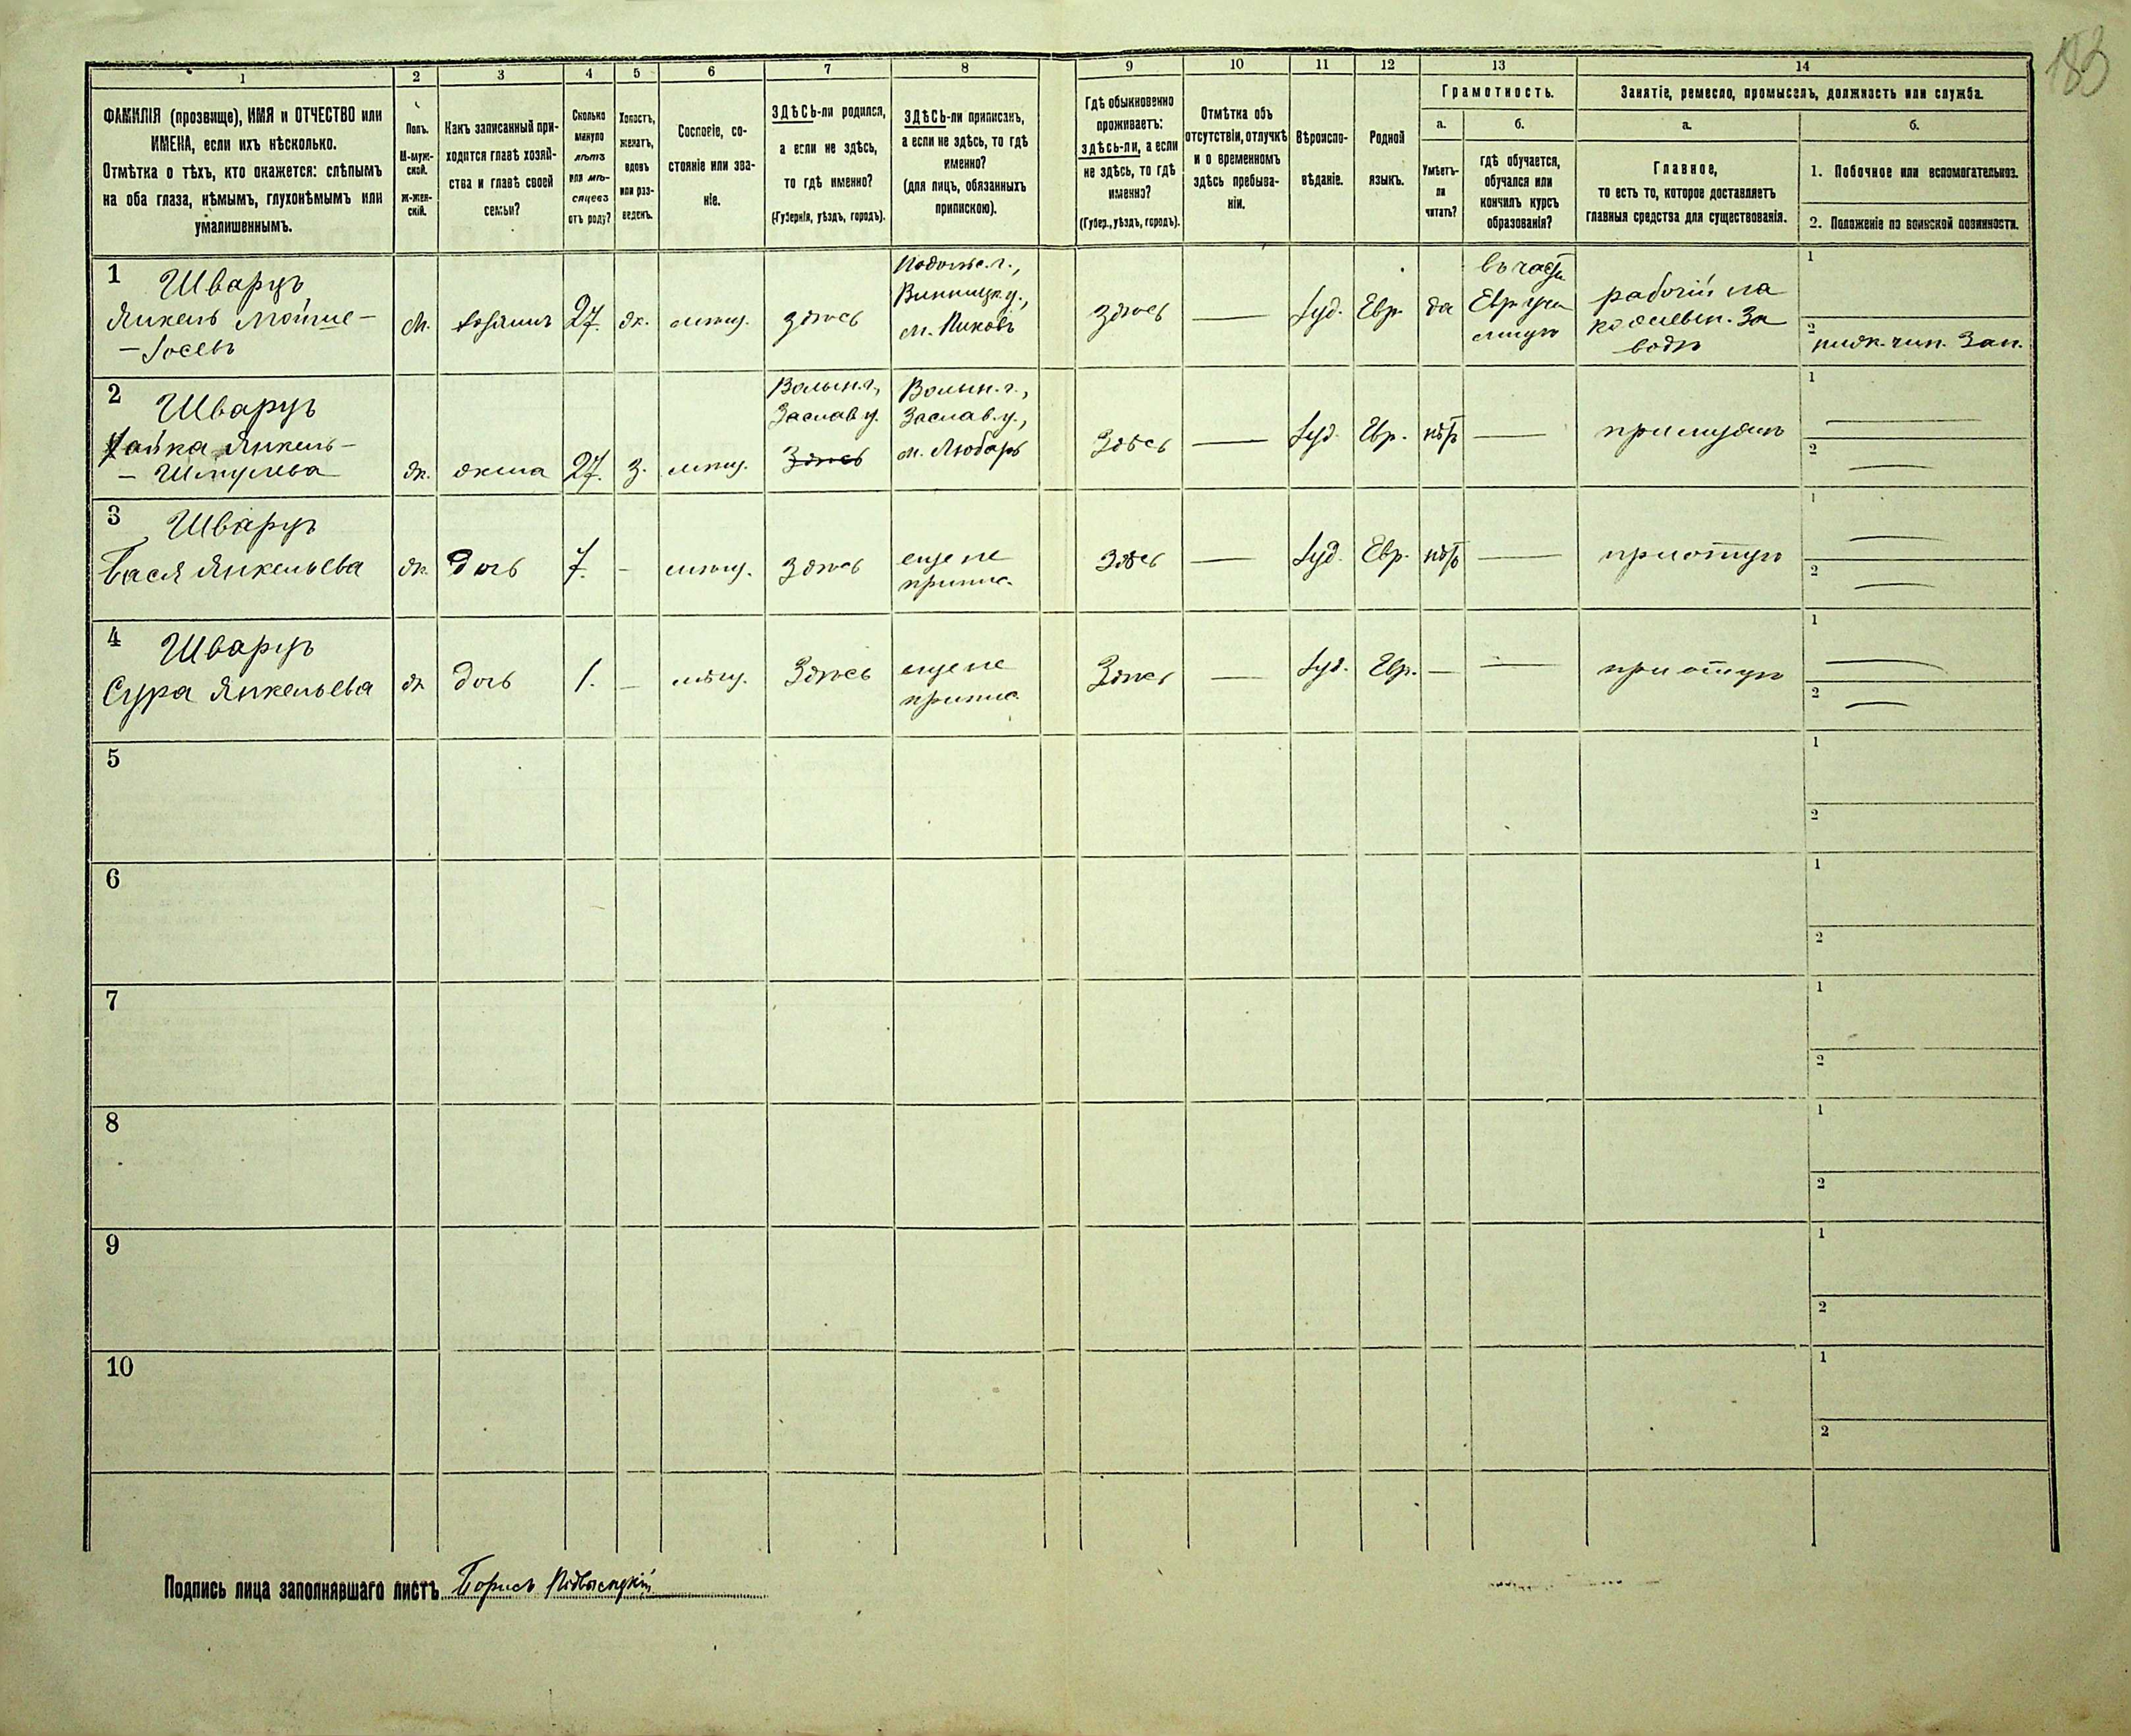 183
1
2
3
4
5
6
7
8
9
10
11
12
13
14
ФАМИЛІЯ (прозвище), ИМЯ и ОТЧЕСТВО или
ИМЕНА, если ихъ нѣсколько.
Отмѣтка о тѣхъ, кто окажется: слѣпымъ
на оба глаза, нѣмымъ, глухонѣмымъ или
умалишеннымъ.
Полъ.
М-муж-
ской.
Ж-жен-
скій.
Какъ записанный при-
ходится главѣ хозяй-
ства и главѣ своей
семьи?
Сколько
минуло
лѣтъ
или мѣ-
сяцевъ
отъ роду?
Холостъ,
женатъ,
вдовъ
или раз-
веденъ.
Сословіе, со-
стояніе или зва-
ніе.
ЗДѢСЬ-ли родился,
а если не здѣсь,
то гдѣ именно?
(Губернія, уѣздъ, городъ).
ЗДѢСЬ-ли приписанъ,
а если не здѣсь, то гдѣ
именно?
(для лицъ, обязанныхъ
припискою).
Гдѣ обыкновенно
проживаетъ:
здѣсь-ли, а если
не здѣсь, то гдѣ
именно?
(Губер., уѣздъ, городъ).
Отмѣтка объ
отсутствіи, отлучкѣ
и о временномъ
здѣсь пребыва-
ніи.
Вѣроиспо-
вѣданіе.
Родной
языкъ.
Грамотность.
а.
б.
Умѣетъ-
ли
читать?
гдѣ обучается,
обучался или
кончилъ курсъ
образованія?
Занятіе, ремесло, промыселъ, должность или служба.
а.
б.
Главное,
то есть то, которое доставляетъ
главныя средства для существованія.
1. Побочное или вспомогательное.
2. Положеніе по воинской повинности.
1
Шварцъ
Янкель Мойше-
-Іосевъ
М.
хозяинъ
27.
ж.
мѣщ.
здѣсь
Подольс. г.,
Винницк. у.,
м. Пиковъ
здѣсь
Іуд.
Евр.
да
въ част.
Евр. учи
лищѣ
рабочій на
кожевен. за
водѣ
1
2
нижн. чин. зап.
2
Шварцъ
Хайка Янкель-
- Шмулева
ж.
жена
27.
з.
мѣщ.
Волын. г.,
Заслав. у.
Здѣсь
Волын. г.,
Заслав. у.,
м. Любаръ
Здѣсь
Іуд.
Евр.
нѣтъ
при мужѣ
1
2
3
Шварцъ
Бася Янкельева
ж.
дочь
7.
-
мѣщ.
здѣсь
еще не
припис.
Здѣсь
Іуд.
Евр.
нѣтъ
при отцѣ
1
2
4
Шварцъ
Сура Янкельева
ж.
дочь
1.
-
мѣщ.
Здѣсь
еще не
припис.
Здѣсь
Іуд.
Евр.
—
при отцѣ
1
2
5
1
2
6
1
2
7
1
2
8
1
2
9
1
2
10
1
2
Подпись лица заполнявшаго листъ Борисъ